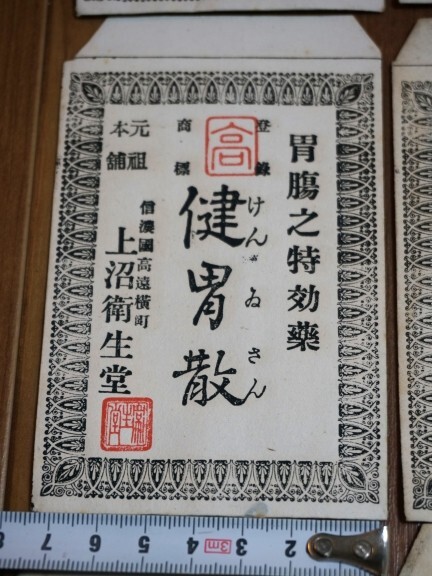 胃腸之特効藥
登録
商標
高
健胃散
けんゐさん
元祖
本舗
信濃國高遠横町
上沼衛生堂
2 3 4 5 6 7 8